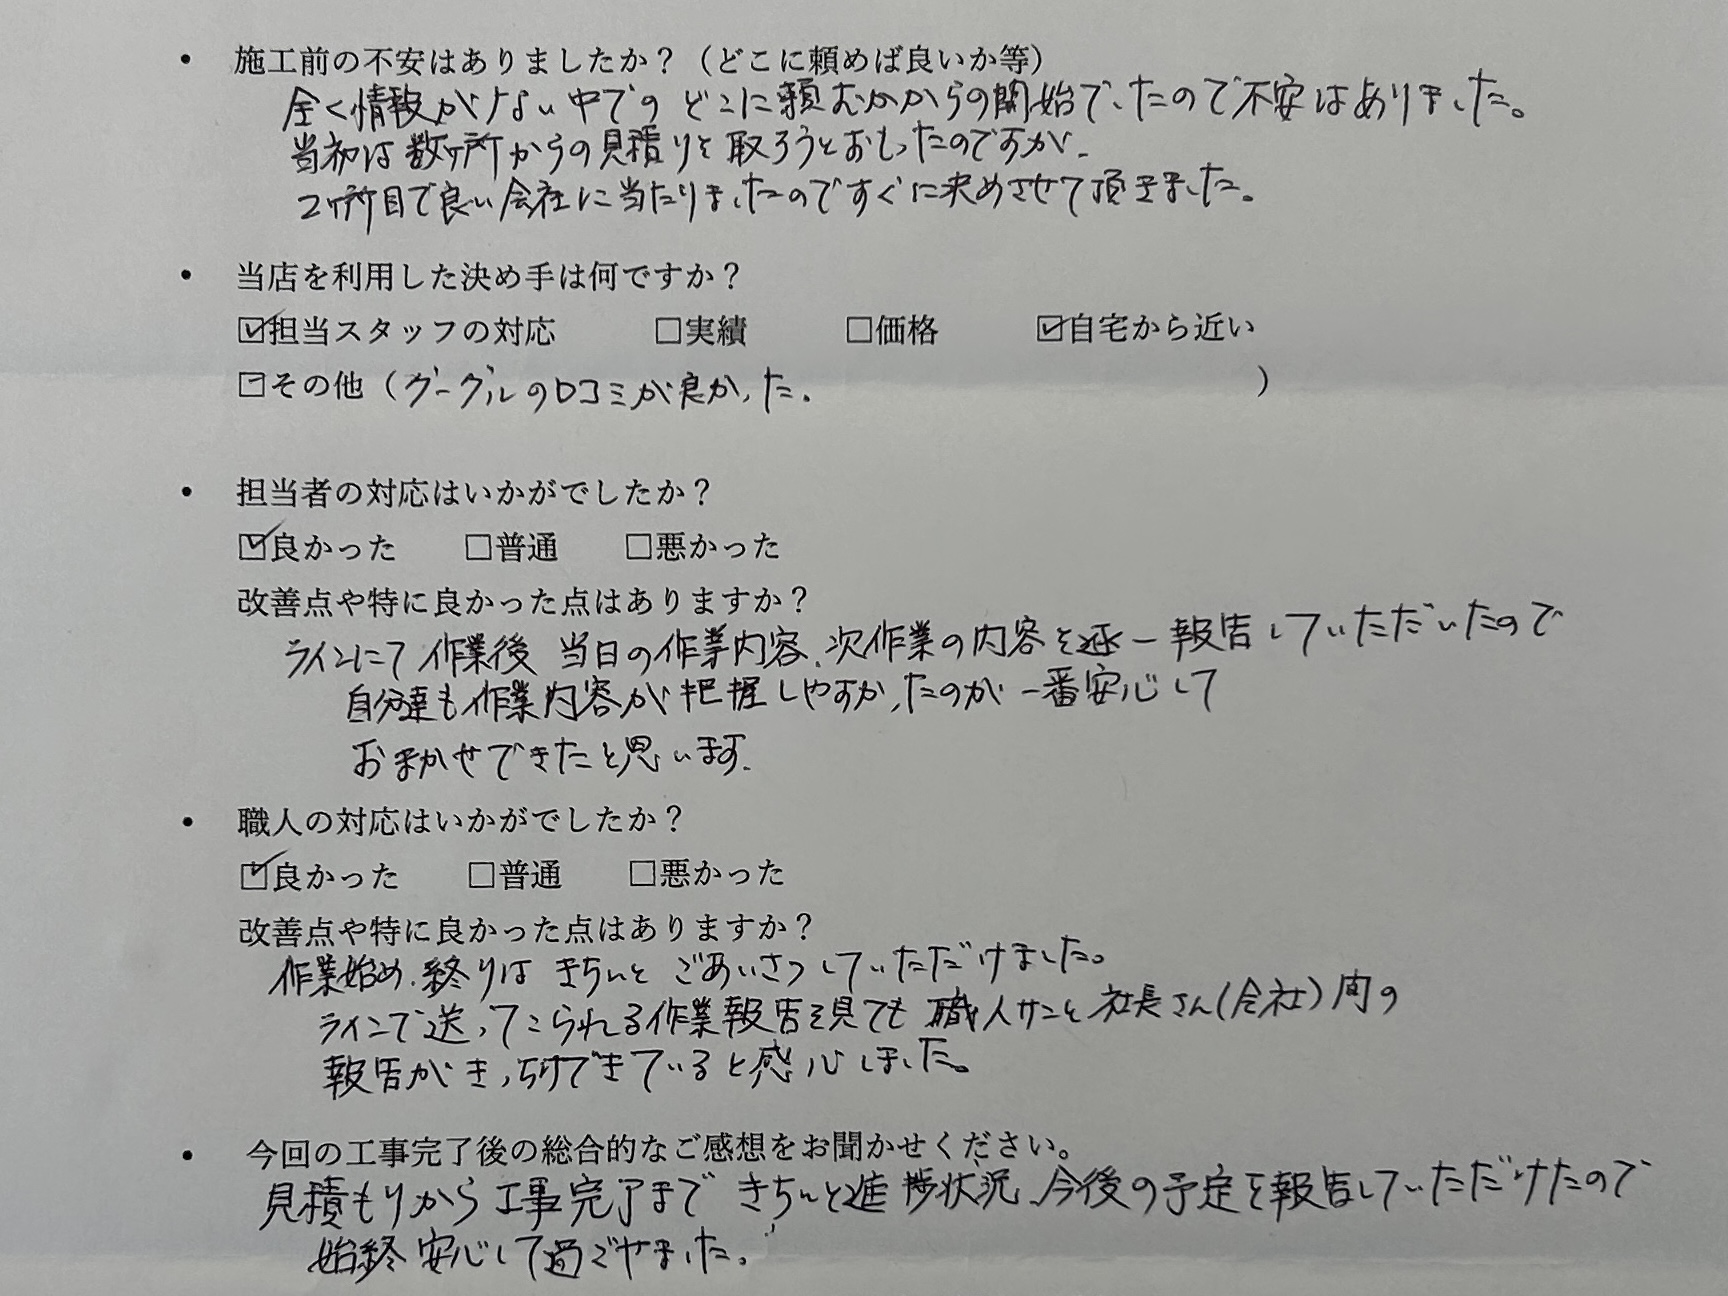 ・ 施工前の不安はありましたか？（どこに頼めば良いか等）
全く情報がない中での どこに頼むかからの開始でしたので不安はありました。
当初は数ヶ所からの見積りを取ろうとおもったのですが、
2ヶ所目で良い会社に当たりましたのですぐに決めさせて頂きました。
・ 当店を利用した決め手は何ですか？
☑担当スタッフの対応 □実績 □価格 ☑自宅から近い
☑その他（グーグルの口コミが良かった。）
・ 担当者の対応はいかがでしたか？
☑良かった □普通 □悪かった
改善点や特に良かった点はありますか？
ラインにて作業後 当日の作業内容、次作業の内容を逐一報告していただいたので
自分達も作業内容が把握しやすかったのが一番安心して
おまかせできたと思います。
・ 職人の対応はいかがでしたか？
☑良かった □普通 □悪かった
改善点や特に良かった点はありますか？
作業始め、終りは きちんと ごあいさつしていただけました。
ラインで送ってこられる作業報告を見ても 職人サンと社長さん(会社)間の
報告がきっちりできていると感心しました。
・ 今回の工事完了後の総合的なご感想をお聞かせください。
見積もりから工事完了まで きちんと進捗状況、今後の予定を報告していただけたので
始終安心して過ごせました。